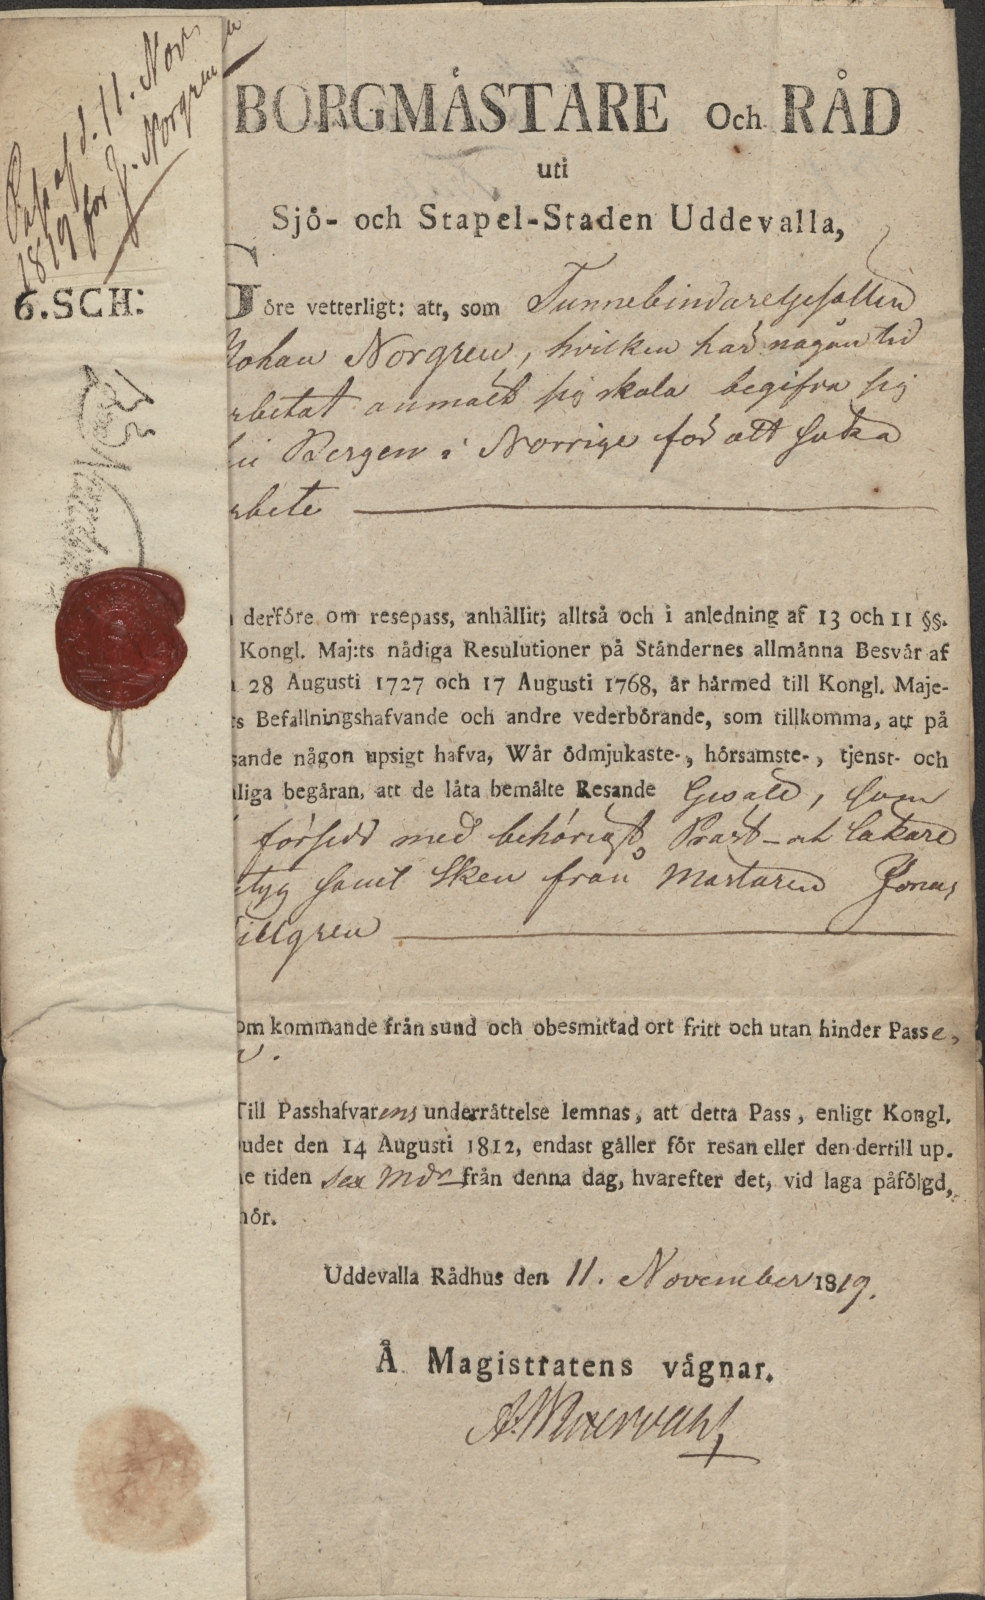 Pass af d. 11. Nov.
1819 for J. Norgren
6.SCH:
BORGMÅSTARE och RÅD
uti
Sjö- och Stapel-Staden Uddevalla,
Göre vetterligt: att, som Tunnebindaregesällen
Johan Norgren, hvilken här någon tid
rbetat anmält sig skola begifva sig
Bergen i Norrige för att söka
rbete
derföre om resepass, anhållit; alltså och i anledning af 13 och 11 §§.
Kongl. Maj:ts nådiga Resulutioner på Ståndernes allmånna Besvår af
28 Augusti 1727 och 17 Augusti 1768, år hårmed till Kongl. Maje-
ts Befallningshafvande och andre vederbörande, som tillkomma, att på
sande någon upsigt hafva, Wår ödmjukaste-, hörsamste-, tjenst- och
liga begåran, att de låta bemålte Resande Gesäll, som
försedd med behörigt Präst- och Läkare
tyg samt Sken från Mästaren Jonas
illgren
om kommande från sund och obesmittad ort fritt och utan hinder Passe,
Till Passhafvarens underråttelse lemnas, att detta Pass, enligt Kongl.
udet den 14 Augusti 1812, endast gåller för resan eller den dertill up.
e tiden sex Mdr från denna dag, hvarefter det, vid laga påfölgd,
hör.
Uddevalla Rådhus den 11. November 1819.
Å Magistratens vågnar.